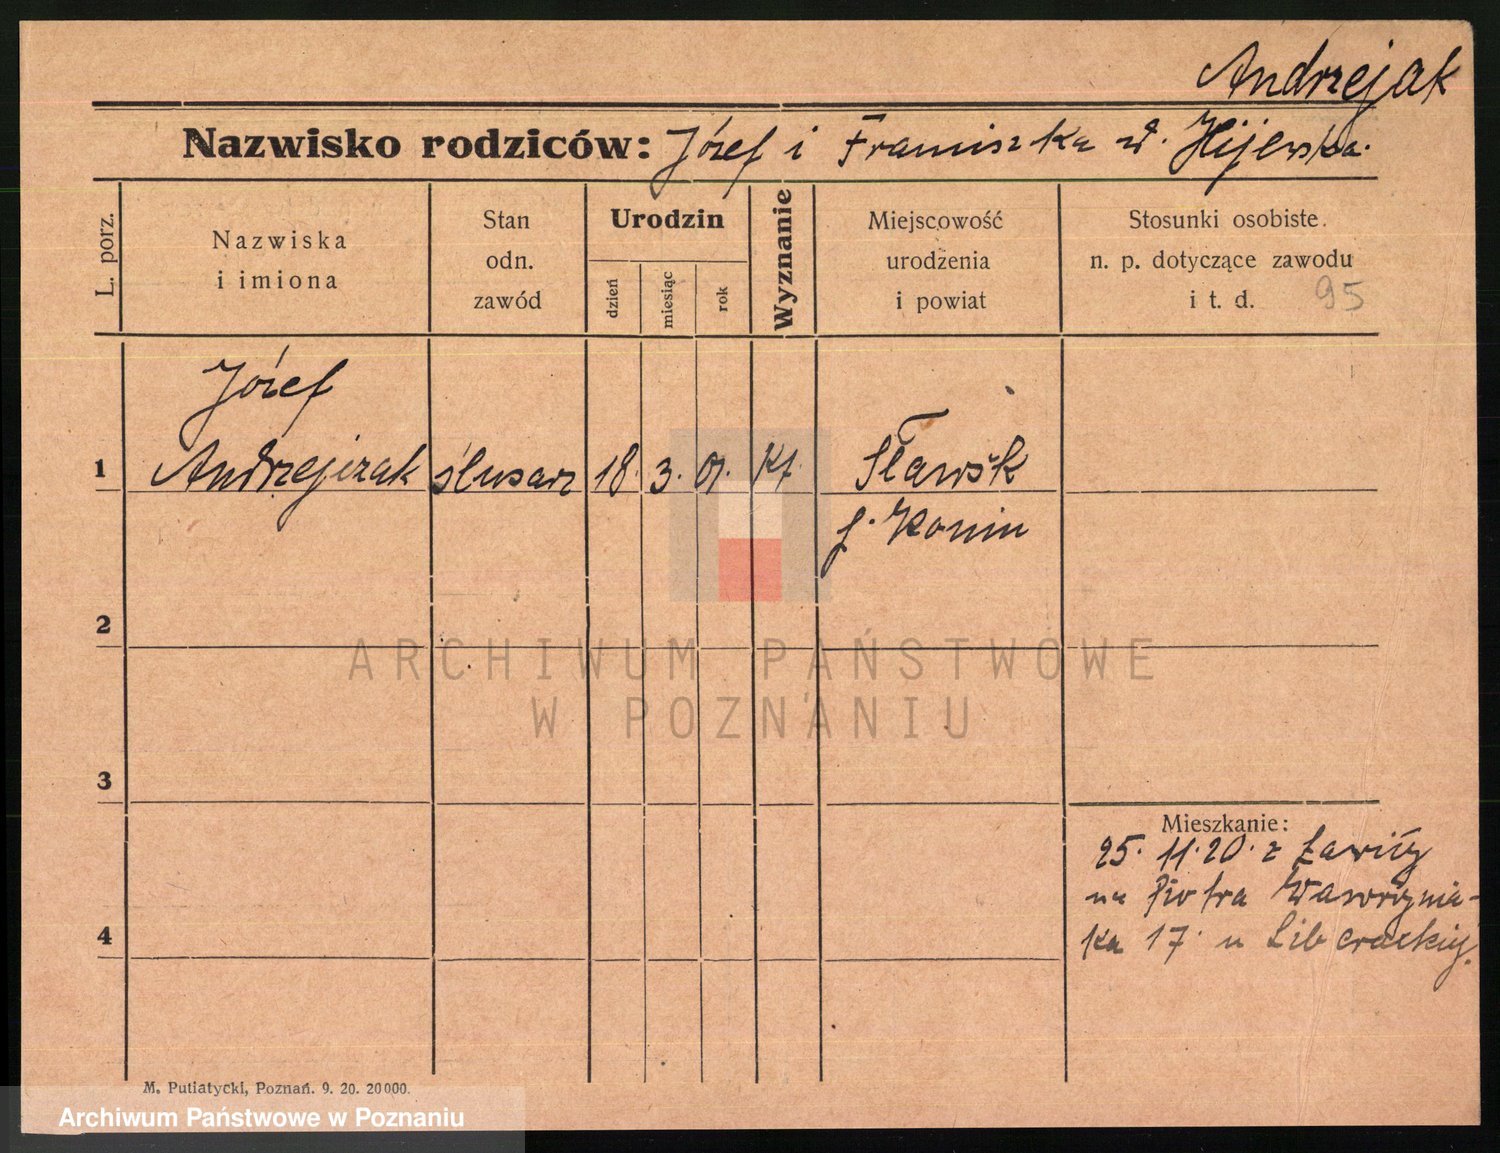 Andrzejak
Nazwisko rodziców: Józef i Franciszka z d. Kijewska.
L. porz.
Nazwiska
i imiona
Stan
odn.
zawód
Urodzin
dzień
miesiąc
rok
Wyznanie
Miejscowość
urodzenia
i powiat
Stosunki osobiste.
n. p. dotyczące zawodu
i t. d. 95
Józef
1 Andrzejczak ślusarz 18. 3. 01. kt. Sławsk
p. Konin
2
3
4
Mieszkanie:
25. 11. 20. z Ławicy
na Piotra Wawrzynia-
ka 17 u
M. Putiatycki, Poznań. 9. 20. 20000.
ARCHIWUM PAŃSTWOWE
W POZNANIU
Archiwum Państwowe w Poznaniu